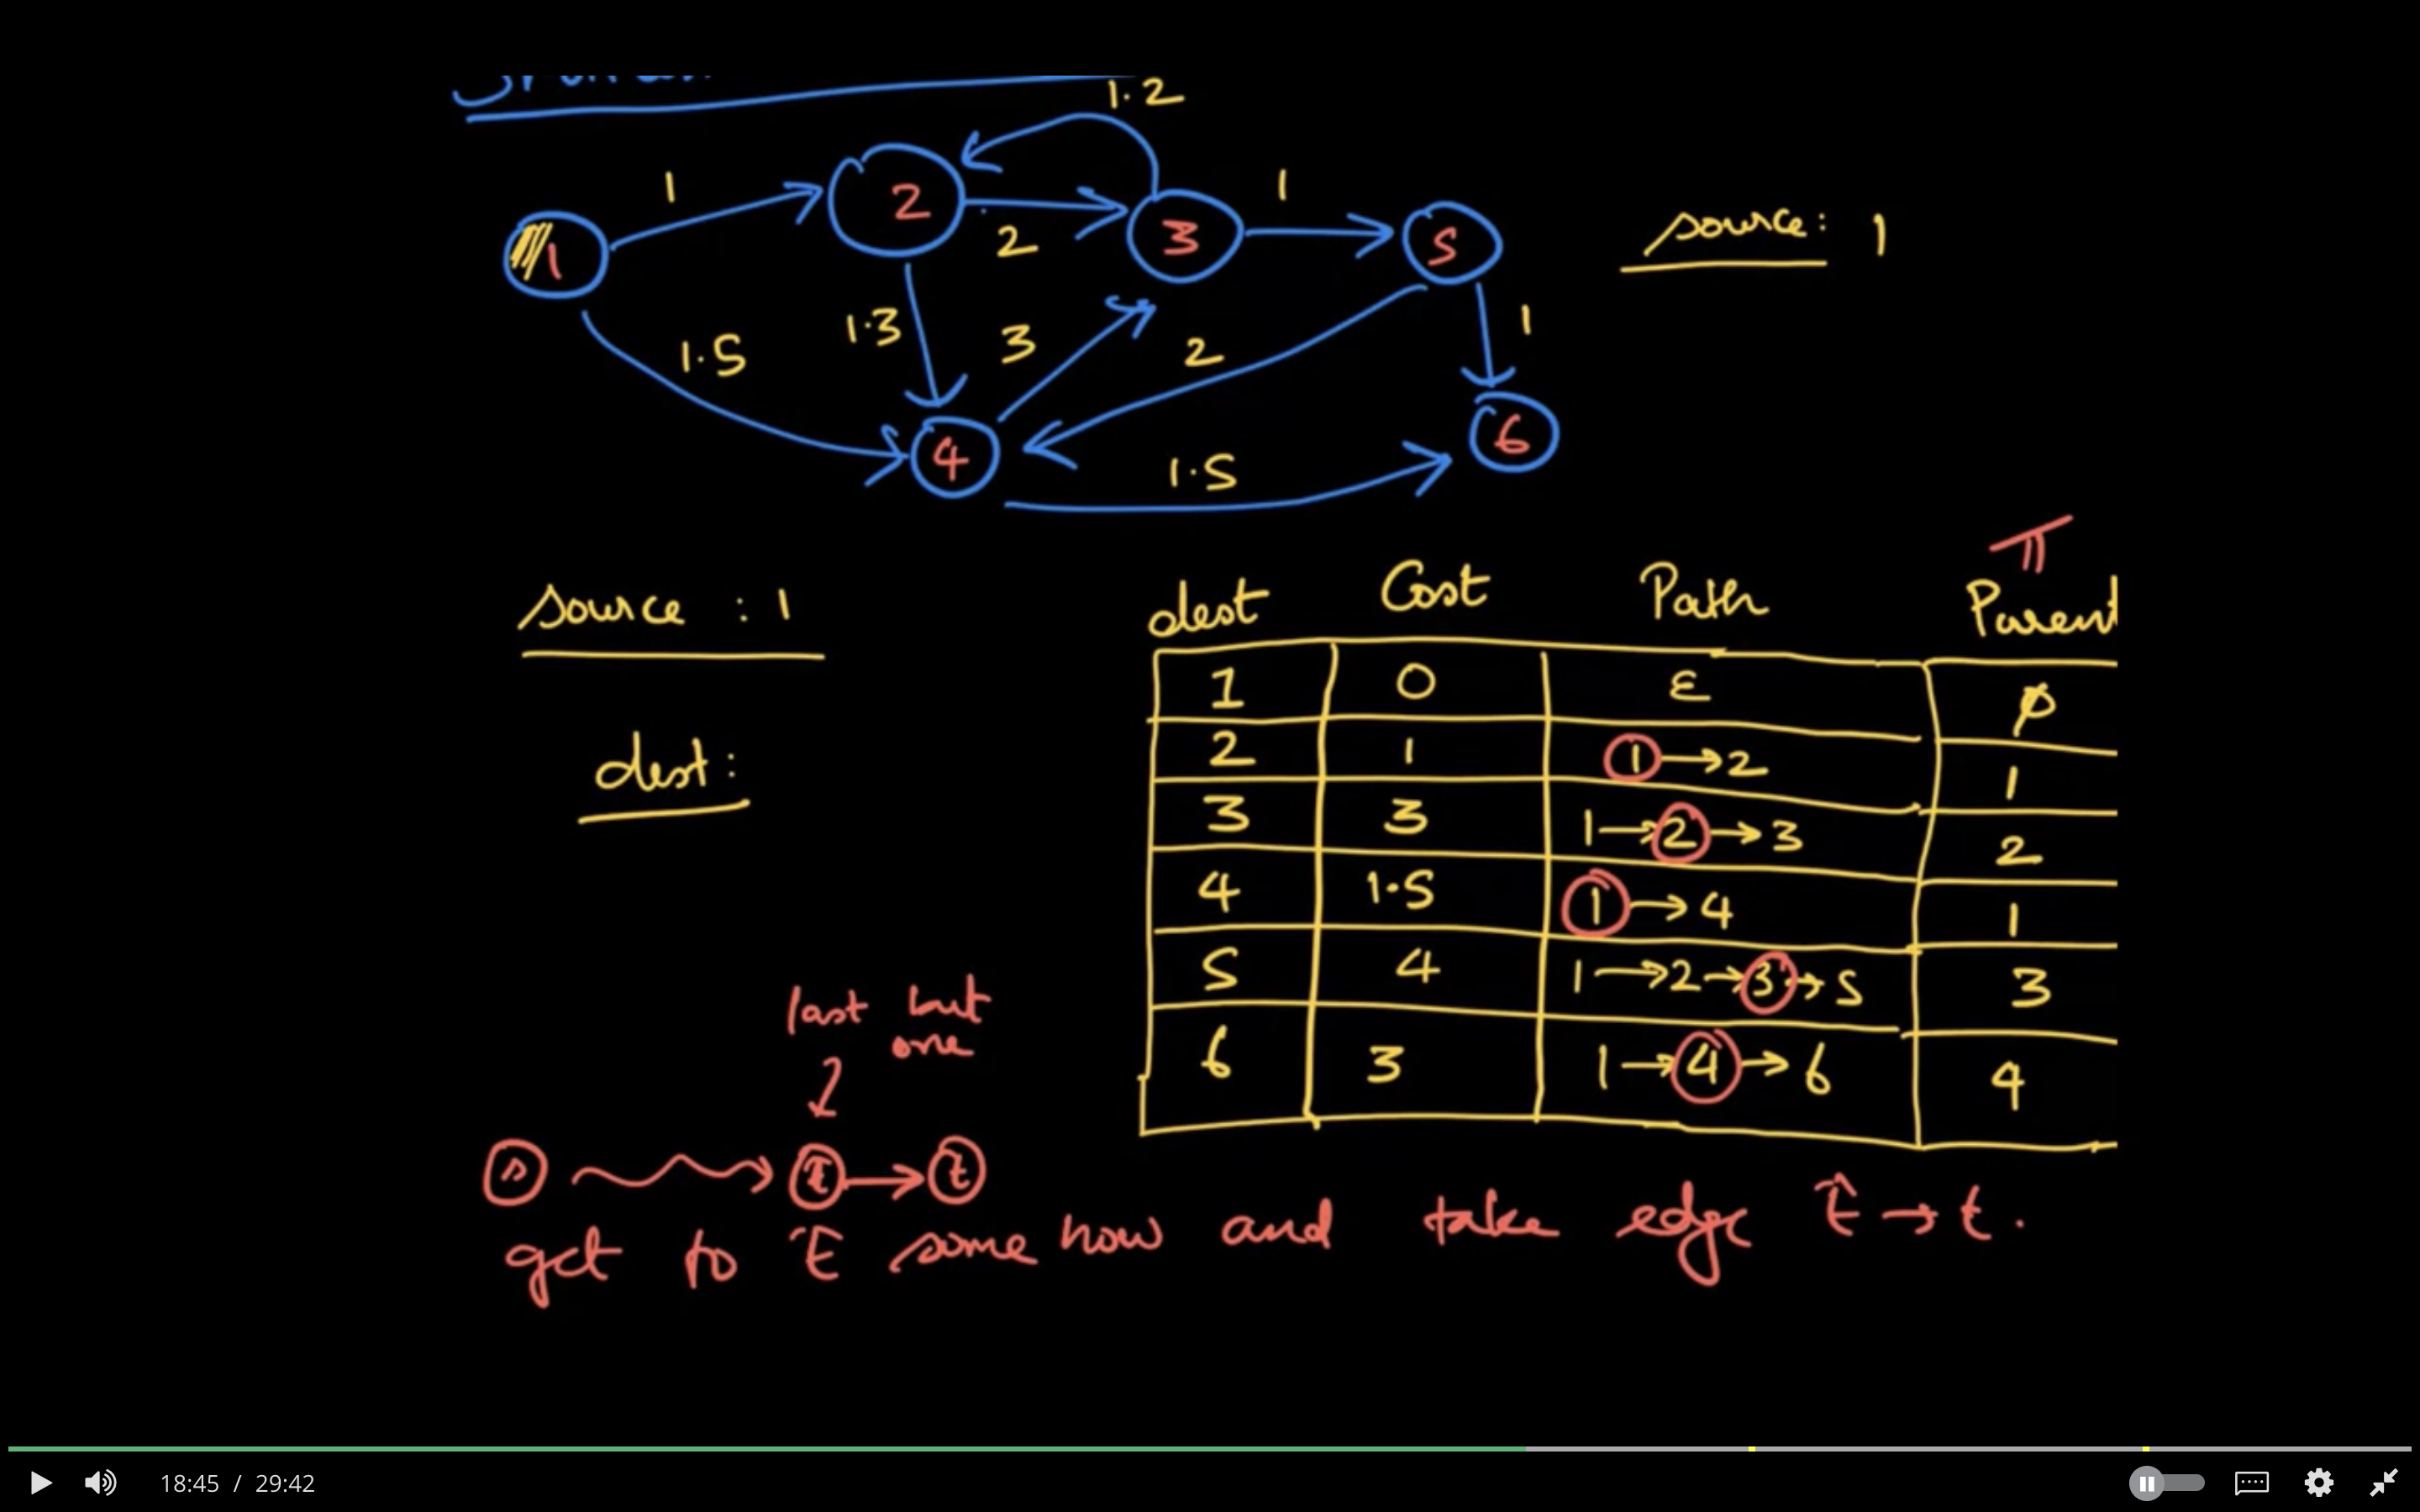 1.2
1
2
2
3
1
5
source: 1
1
1.5
1.3
3
2
1
4
1.5
6
π
source : 1
dest Cost Path Parent
1 0 ε ϕ
2 1 1→2 1
dest:
3 3 1→2→3 2
4 1.5 1→4 1
5 4 1→2→3→5 3
6 3 1→4→6 4
last but
one
s t̂ t
get to t̂ some how and take edge t̂→t.
18:45 / 29:42